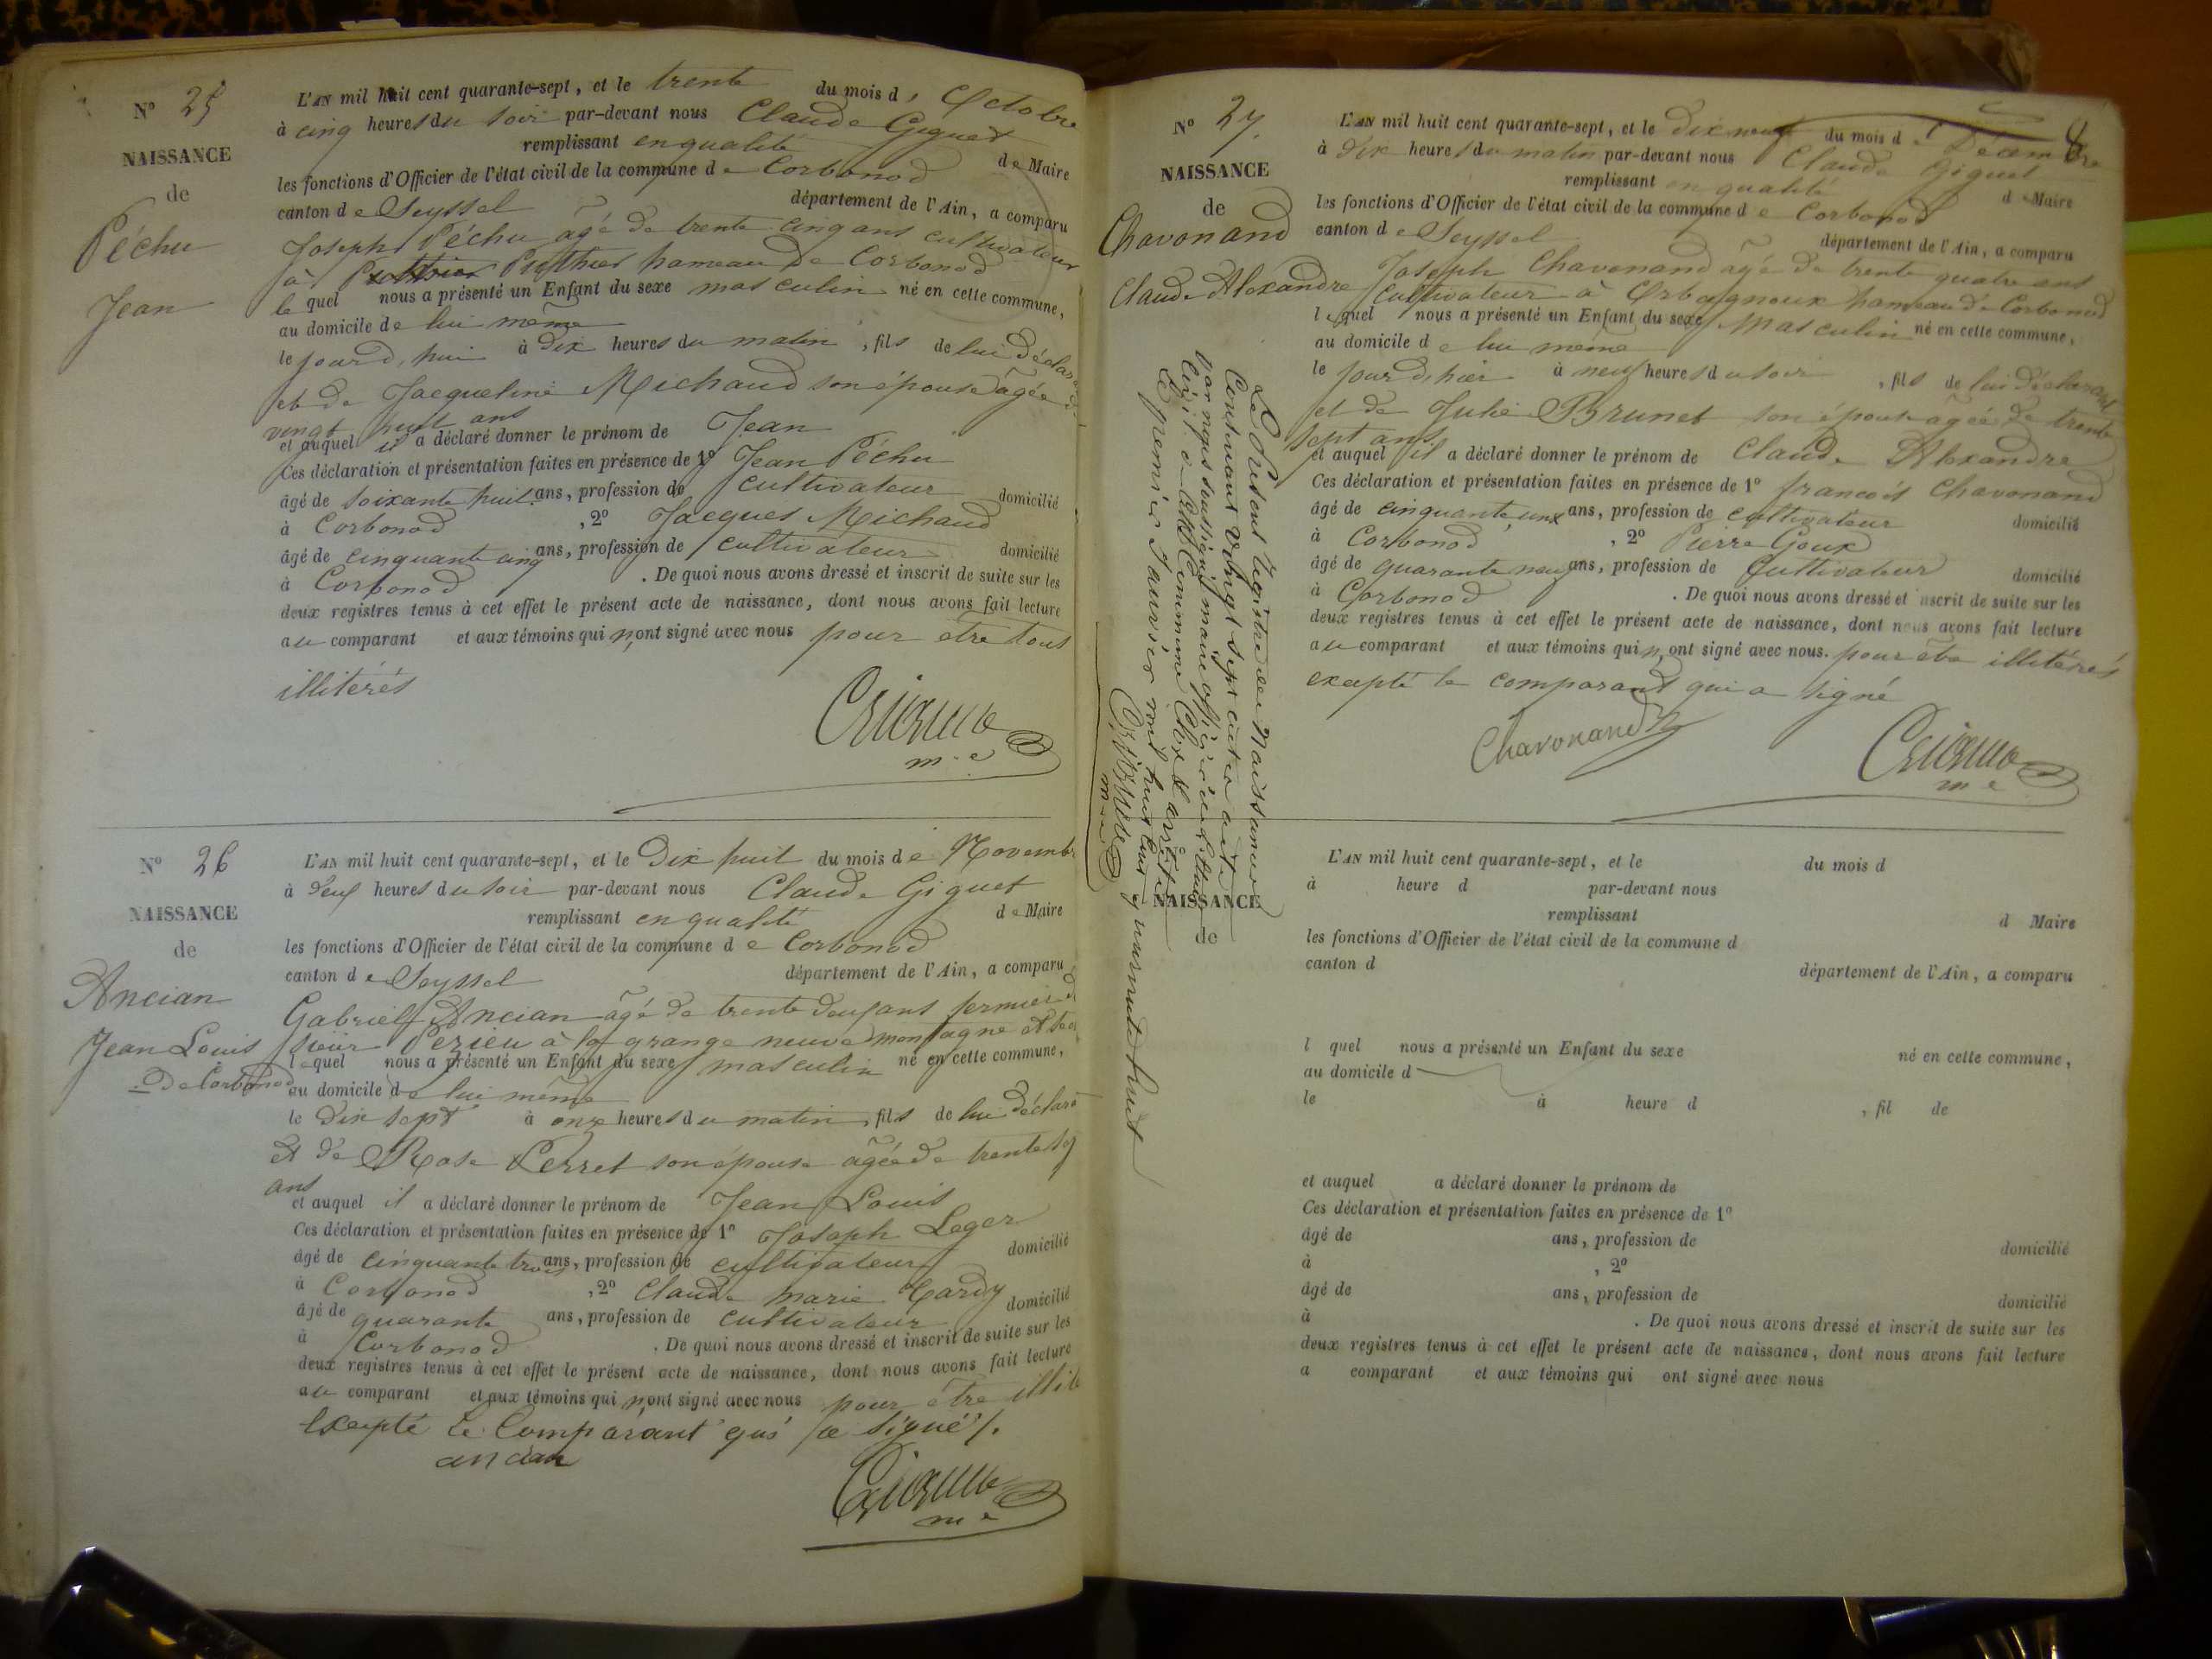 N° 25
NAISSANCE
de
Péchu
Jean
L'AN mil huit cent quarante-sept, et le trente du mois d'Octobre
à cinq heures du soir par-devant nous Claude Giguet
remplissant en qualité de Maire
les fonctions d'Officier de l'état civil de la commune de Corbonod
canton de Seyssel département de l'Ain, a comparu
Joseph Péchu âgé de trente cinq ans cultivateur
à Puthier hameau de Corbonod
lequel nous a présenté un Enfant du sexe masculin né en cette commune,
au domicile de lui même
le jourd'hui à dix heures du matin, fils de lui déclarant
et de Jacqueline Michaud son épouse âgée
vingt huit ans
et auquel il a déclaré donner le prénom de Jean
Ces déclaration et présentation faites en présence de 1° Jean Péchu
âgé de soixante huit ans, profession de cultivateur domicilié
à Corbonod, 2° Jacques Michaud
âgé de cinquante cinq ans, profession de cultivateur domicilié
à Corbonod. De quoi nous avons dressé et inscrit de suite sur les
deux registres tenus à cet effet le présent acte de naissance, dont nous avons fait lecture
au comparant et aux témoins qui n'ont signé avec nous pour être tous
illitérés
m.e
N° 26
NAISSANCE
de
Ancian
Jean Louis
de Corbonod
L'AN mil huit cent quarante-sept, et le dix huit du mois de Novembre
à deux heures du soir par-devant nous Claude Giguet
remplissant en qualité de Maire
les fonctions d'Officier de l'état civil de la commune de Corbonod
canton de Seyssel département de l'Ain, a comparu
Gabriel Ancian âgé de trente deux ans fermier de
sieur Perieu à la grange neuve montagne
lequel nous a présenté un Enfant du sexe masculin né en cette commune,
au domicile de lui même
le dix sept à onze heures du matin, fils de lui déclara
et de Rose Perret son épouse âgée de trente
ans
et auquel il a déclaré donner le prénom de Jean Louis
Ces déclaration et présentation faites en présence de 1° Joseph Leger
âgé de cinquante trois ans, profession de cultivateur domicilié
à Corbonod, 2° Claude marie Cardy
âgé de quarante ans, profession de cultivateur domicilié
à Corbonod. De quoi nous avons dressé et inscrit de suite sur les
deux registres tenus à cet effet le présent acte de naissance, dont nous avons fait lecture
au comparant et aux témoins qui n'ont signé avec nous pour être illité
Excepté le Comparant qui a signé /.
ancian
m.e
8
N° 27.
NAISSANCE
de
Chavonand
Claude Alexandre
L'AN mil huit cent quarante-sept, et le dix neuf du mois de Décembre
à dix heures du matin par-devant nous Claude Giguet
remplissant en qualité de Maire
les fonctions d'Officier de l'état civil de la commune de Corbonod
canton de Seyssel département de l'Ain, a comparu
Joseph Chavonand âgé de trente quatre ans
cultivateur à Orbagnoux hameau de Corbonod
lequel nous a présenté un Enfant du sexe Masculin né en cette commune,
au domicile de lui même
le jour d'hier à neuf heures du soir, fils de lui déclarant
et de Julie Brunet son épouse agée de trente
sept ans
et auquel il a déclaré donner le prénom de Claude Alexandre
Ces déclaration et présentation faites en présence de 1° francois Chavonand
âgé de cinquante ans, profession de cultivateur domicilié
à Corbonod, 2° Pierre Goux
âgé de quarante neuf ans, profession de Cultivateur domicilié
à Corbonod. De quoi nous avons dressé et inscrit de suite sur les
deux registres tenus à cet effet le présent acte de naissance, dont nous avons fait lecture
au comparant et aux témoins qui n'ont signé avec nous. pour être illitérés
excepté le comparant qui a signé
Chavonand
m.e
Le Présent Régistre de Naissances
Contenant vingt sept actes a été
par nous soussigné maire officier de l'état
Civil de cette commune Clos et arrêté
Le premier Janvier mil huit cent quarante huit
m.e
N°
NAISSANCE
de
L'AN mil huit cent quarante-sept, et le du mois d
à heure d par-devant nous
remplissant d Maire
les fonctions d'Officier de l'état civil de la commune d
canton d département de l'Ain, a comparu
l quel nous a présenté un Enfant du sexe né en cette commune,
au domicile d
le à heure d , fil de
et auquel a déclaré donner le prénom de
Ces déclaration et présentation faites en présence de 1°
âgé de ans, profession de domicilié
à , 2°
âgé de ans, profession de domicilié
à . De quoi nous avons dressé et inscrit de suite sur les
deux registres tenus à cet effet le présent acte de naissance, dont nous avons fait lecture
a comparant et aux témoins qui ont signé avec nous